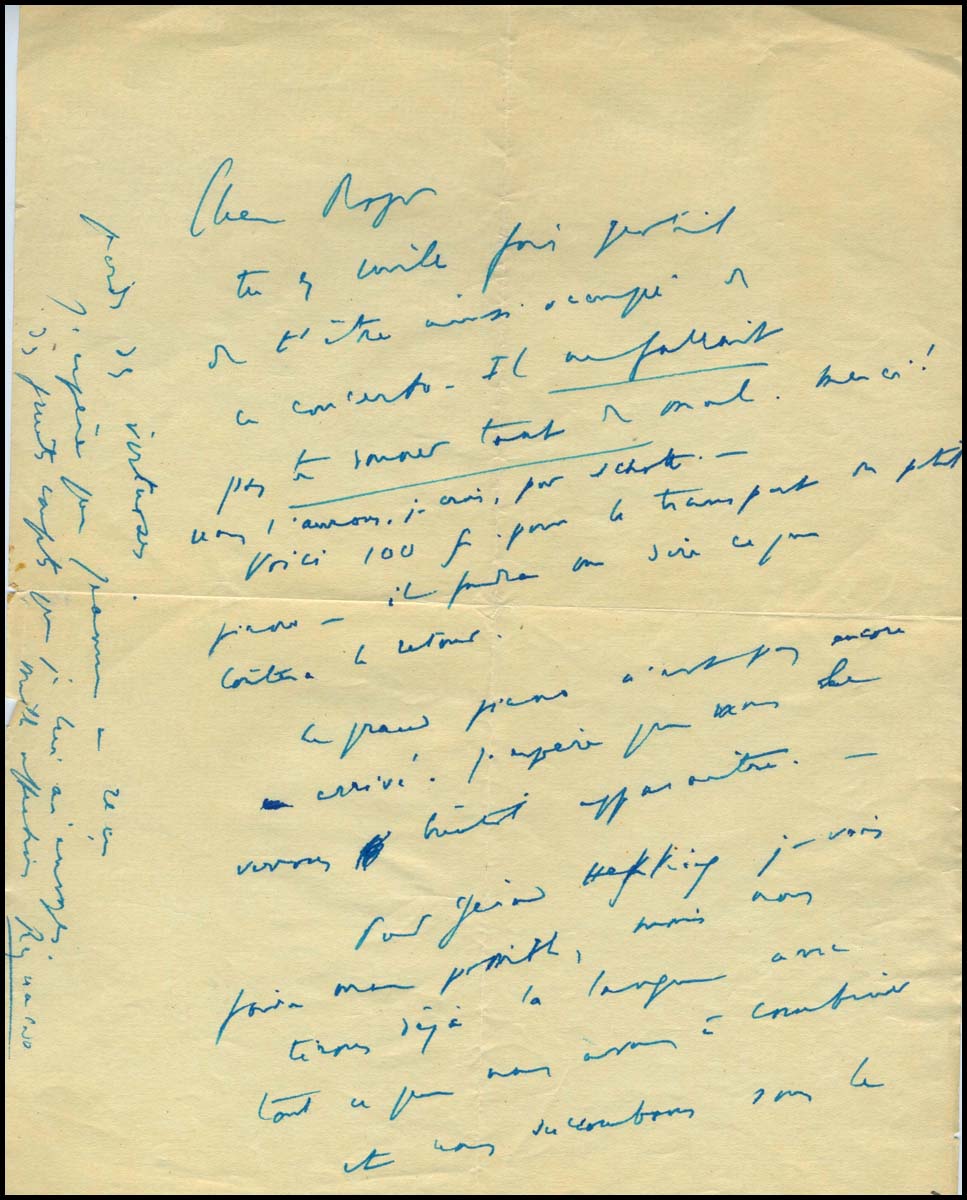 Cher Roger
tu es mille fois gentil
de t'être ainsi occupé de
ce concerto - Il ne fallait
pas te donner tant de mal. merci!
nous l'aurons, je crois, par Schott. -
Voici 100 f. pour le transport du petit
piano - il faudra me dire ce que
coûtera le retour.
Le grand piano n'est pas encore
arrivé! J'espère que nous le
verrons bientôt apparaître. -
Pour Gérard Hekking je vais
faire mon possible, mais nous
tirons déjà la langue avec
tout ce que nous avons à combiner
et nous succombons sous le
poids des virtuoses.
J'espère que maman a reçu
les fruits confits que je lui ai envoyés.
mille affections Reynaldo